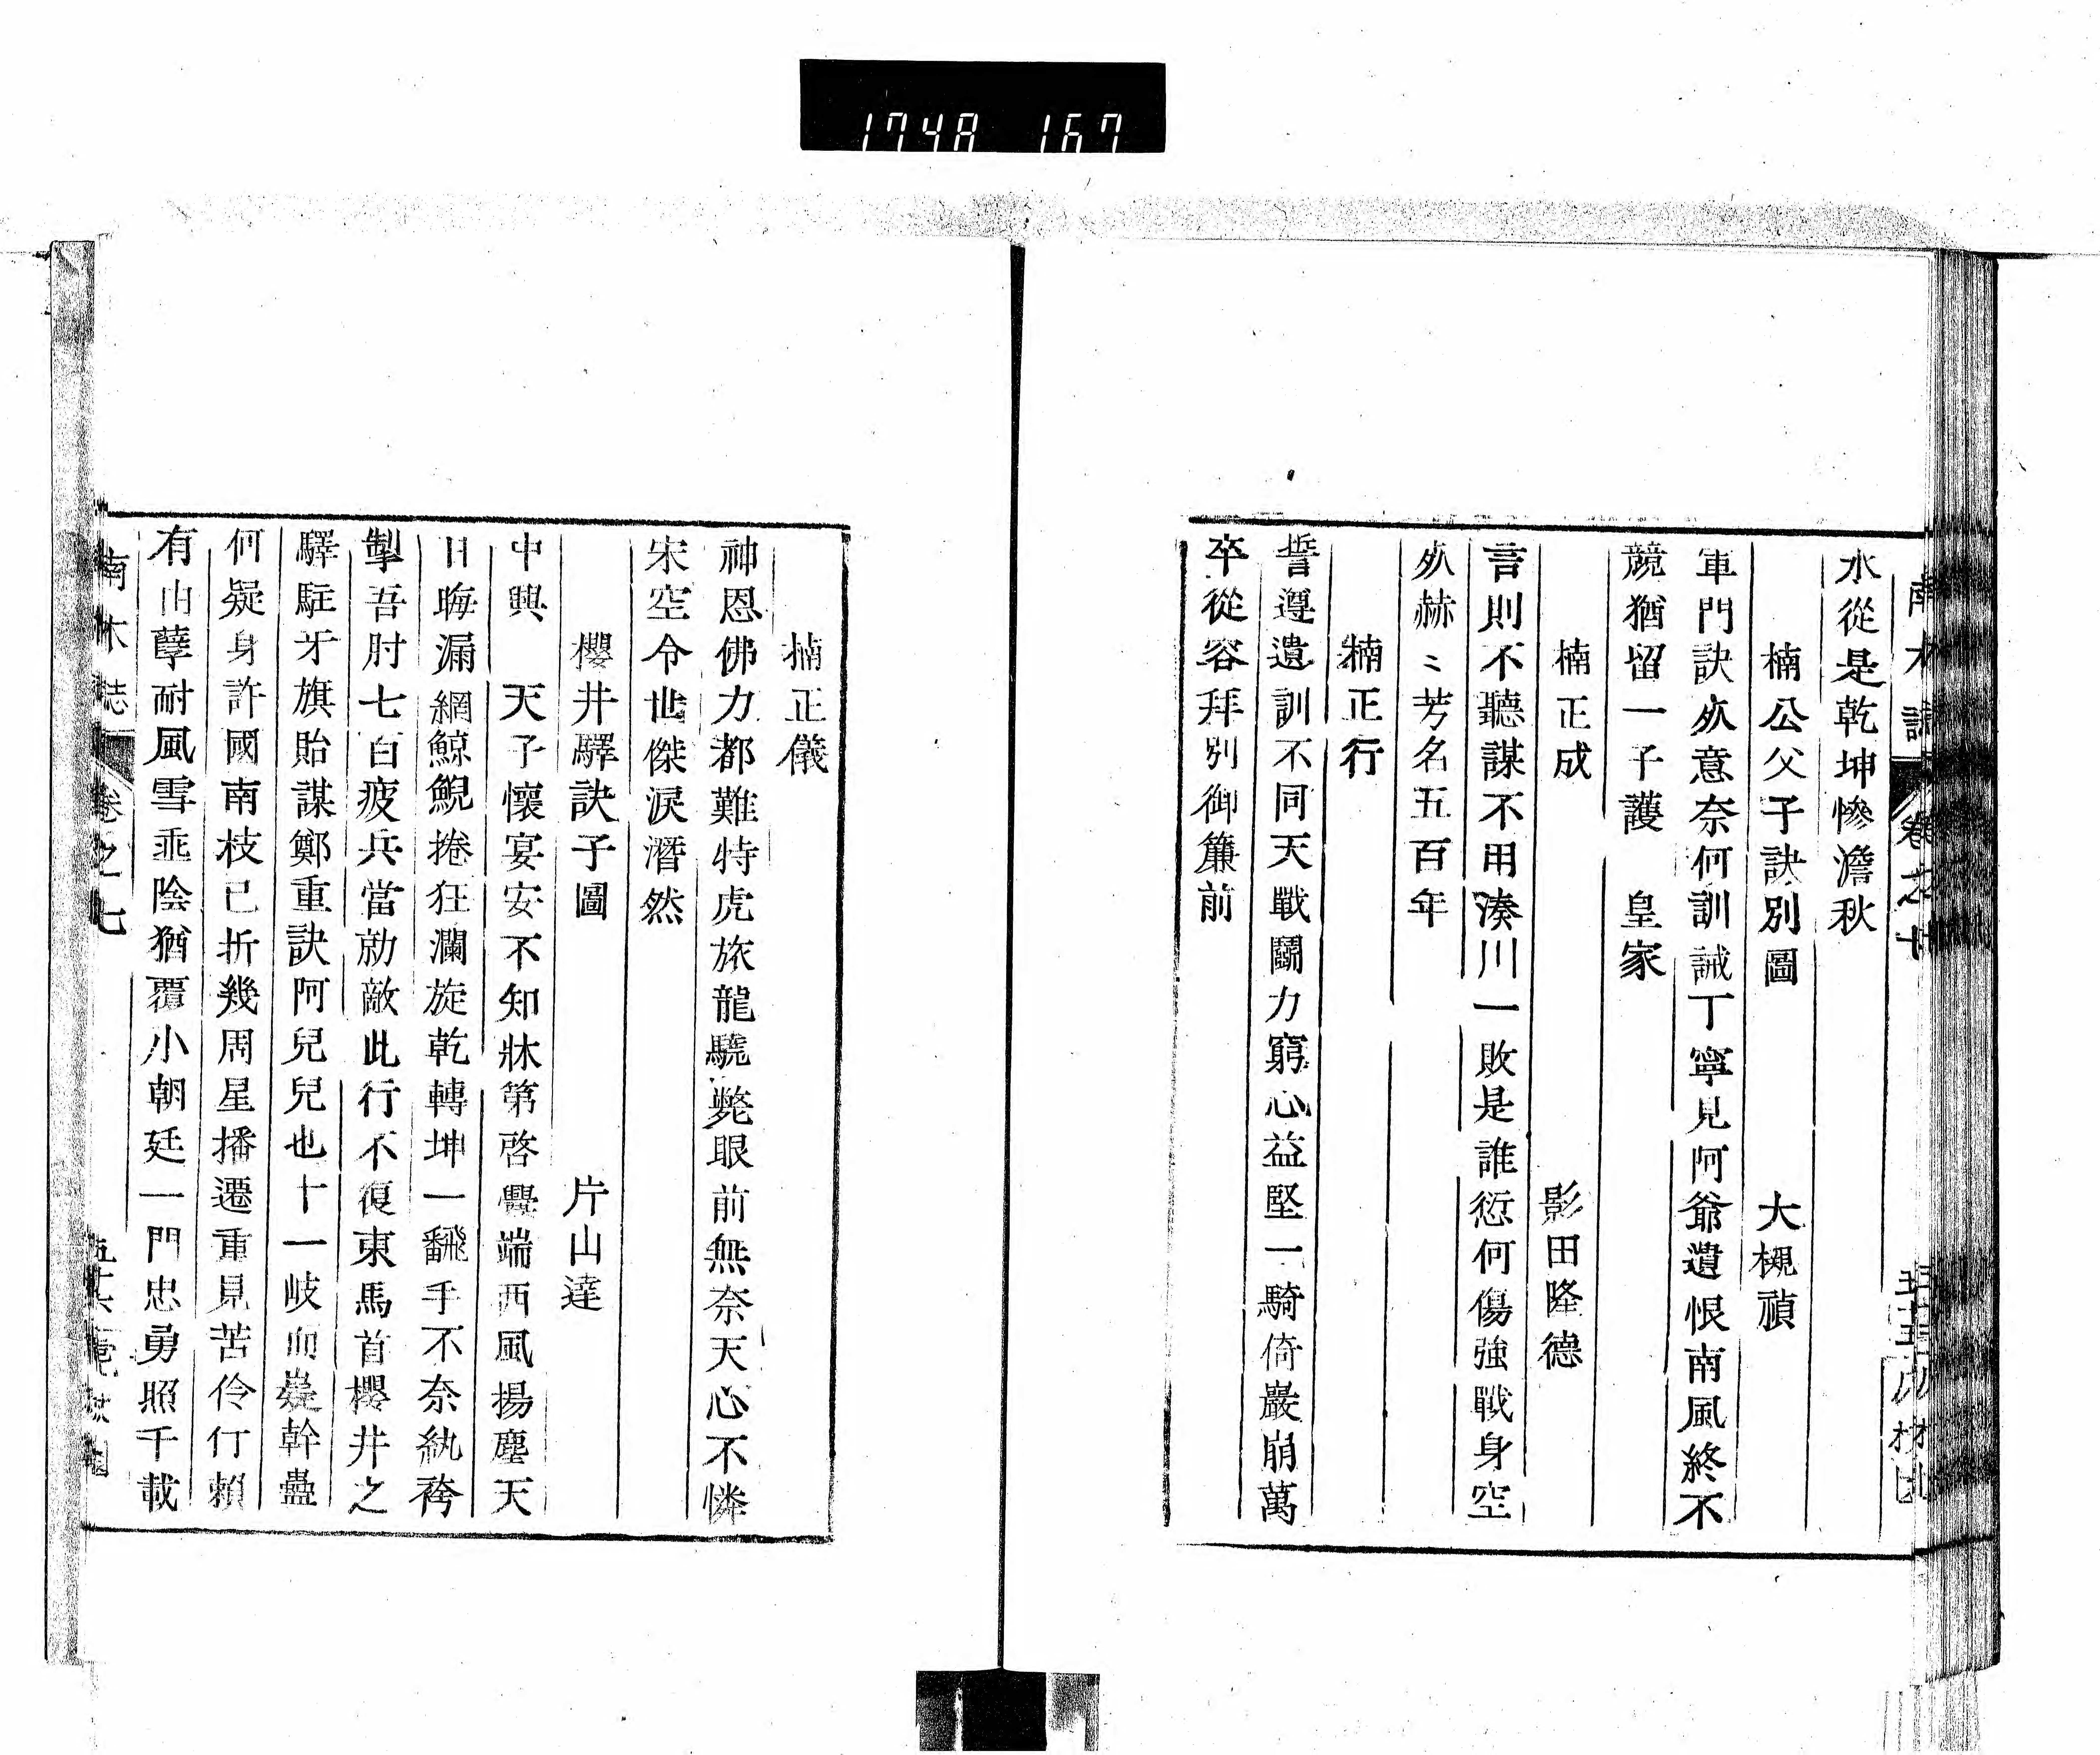 1748 167
水從是乾坤慘澹秋
楠公父子訣別圖 大槻禎
軍門訣飮意奈何訓誡丁寧見阿爺遺恨南風終不
競猶留一子護 皇家
楠正成 影田隆德
言則不聽謀不用湊川一敗是誰愆何傷強戰身空
死赫〻芳名五百年
楠正行
誓遵遺訓不同天戰鬭力窮心益堅一騎倚巖崩萬
卒從容拜別御簾前
楠正儀
神恩佛力都難恃虎旅龍驍斃眼前無奈天心不憐
宋空令世傑淚潛然
櫻井驛訣子圖 片山達
中興 天子懷宴安不知牀第啓釁端西風揚塵天
日晦漏網鯨鯢捲狂瀾旋乾轉坤一飜手不奈紈袴
掣吾肘七百疲兵當勍敵此行不復東馬首櫻井之
驛駐牙旗貽謀鄭重訣阿兒兒也十一岐而嶷幹蠱
何疑身許國南枝已折幾周星播遷重見苦伶仃賴
有山孽耐風雪垂陰猶覆小朝廷一門忠勇照千載
南木誌 卷之七